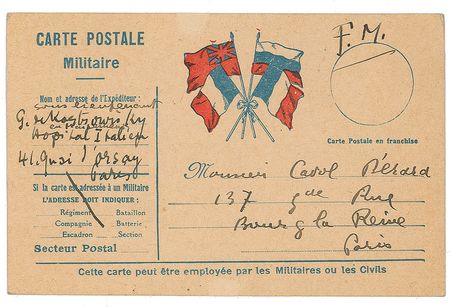 CARTE POSTALE
Militaire
F. M.
Nom et adresse de l'Expéditeur:
sous lieutenant
G.
Hopital Italien
41. Quai d'Orsay
Paris
Si la carte est adressée à un Militaire
L'ADRESSE DOIT INDIQUER:
Régiment Bataillon
Compagnie Batterie
Escadron Section
Secteur Postal
Carte Postale en franchise
Monsieur Carol Bérard
137 gde Rue
Bourg la Reine
Paris
Cette carte peut être employée par les Militaires ou les Civils